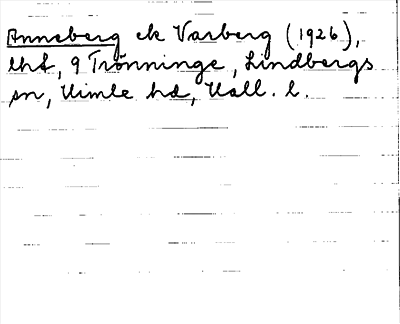 Anneberg ek Varberg (1926),
lhf, 9 Trönninge, Lindbergs
sn, Himle hd, Hall. l.